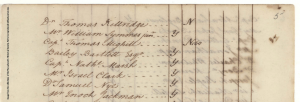 Dr. Thomas Kittridge N
Mr. William Symmes jun. y
Capt. Thomas Mighill Noo
Bailey Bartlett Esqr. y
Capt. Nathl. Marsh y
Mr. Israel Clark y
Dr. Samuel Nye y
Mr. Enoch Jackman y